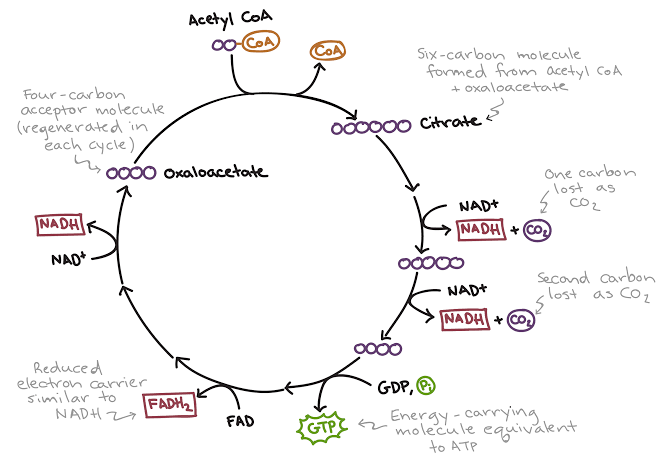 Acetyl CoA
CoA
CoA
Six-carbon molecule
formed from acetyl CoA
+ oxaloacetate
Four-carbon
acceptor molecule
(regenerated in
each cycle)
Citrate
Oxaloacetate
NAD+
NADH + CO2
One carbon
lost as
CO2
NADH
NAD+
NAD+
NADH + CO2
Second carbon
lost as CO2
GDP, Pi
GTP
Energy-carrying
molecule equivalent
to ATP
FAD
FADH2
Reduced
electron carrier
similar to
NADH